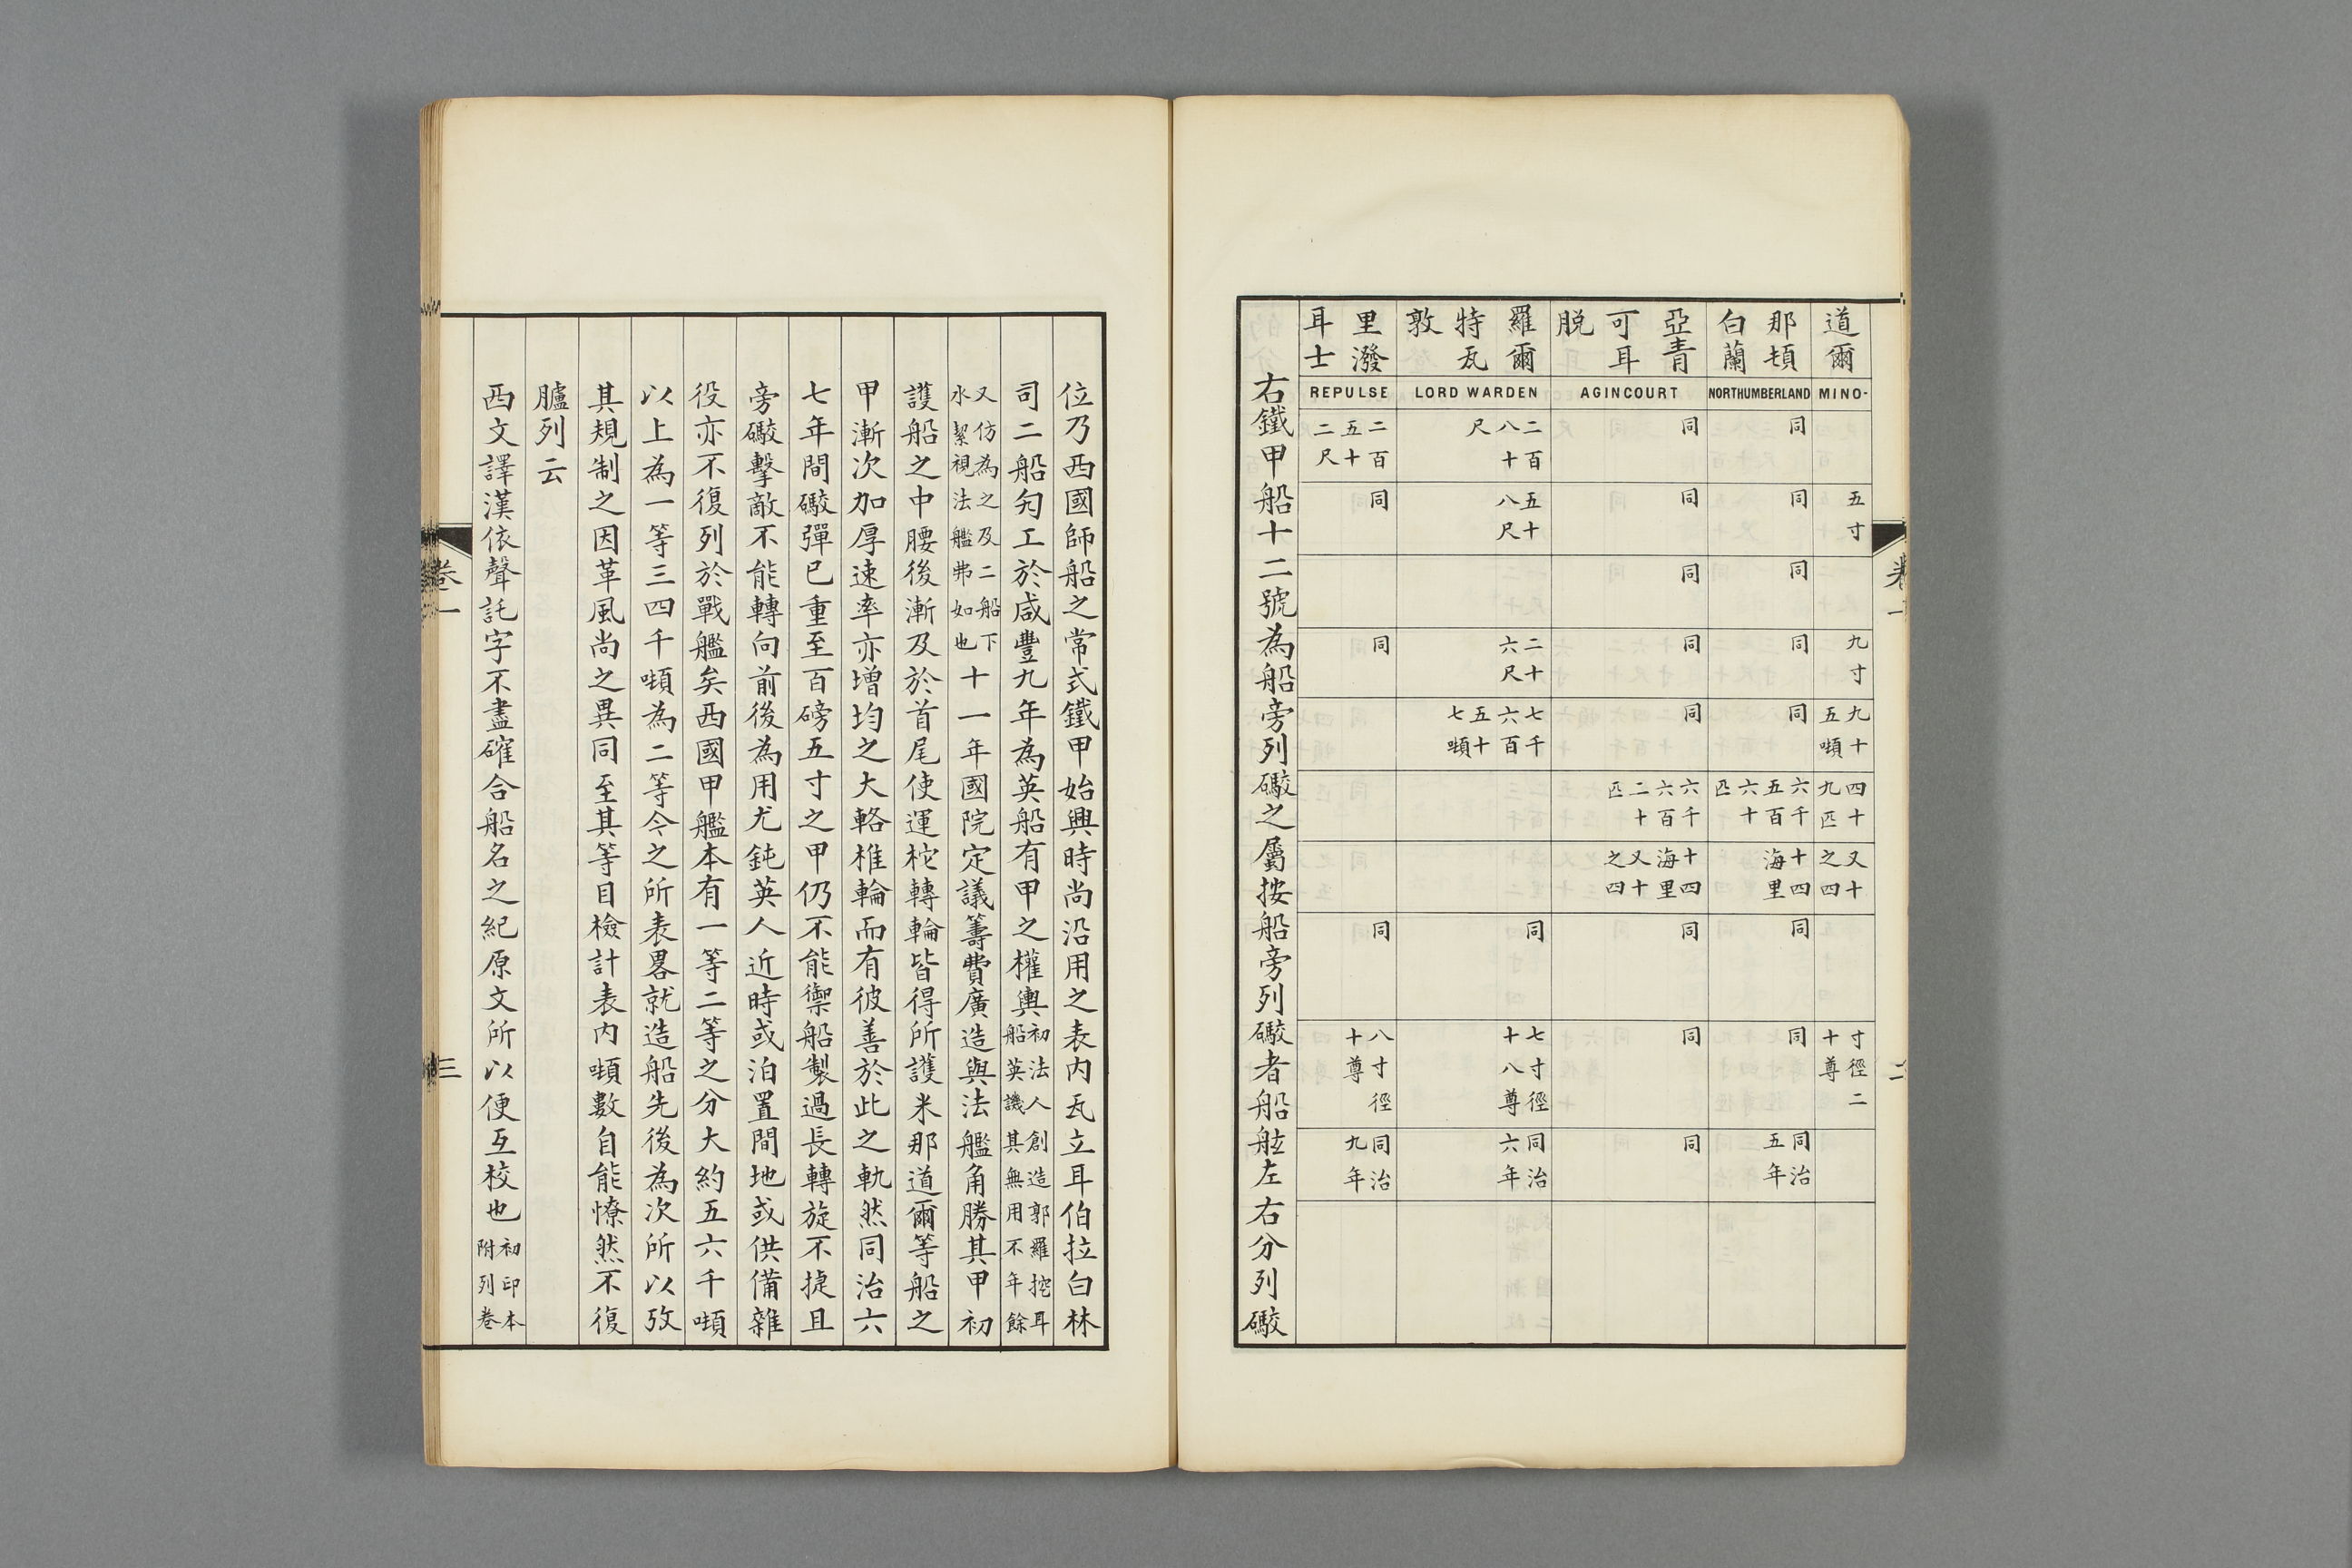 道爾
MINO-
五寸
九寸
九十
五噸
四十
九匹
又十
之四
寸徑二
十尊
那頓
白蘭
NORTHUMBERLAND
同
同
同
同
同
六千
五百
六十
匹
十四
海里
同
同
同治
五年
亞青
可耳
脱
AGINCOURT
同
同
同
同
同
六千
六百
二十
匹
十四
海里
又十
之四
同
同
同
羅爾
特瓦
敦
LORD WARDEN
二百
八十
尺
五十
八尺
二十
六尺
七千
六百
五十
七噸
同
七寸徑
十八尊
同治
六年
里潑
耳士
REPULSE
二百
五十
二尺
同
同
同
八寸徑
十尊
同治
九年
右鐵甲船十二號為船旁列礮之屬按船旁列礮者船舷左右分列礮
卷一
二
位乃西國師船之常式鐵甲始興時尚沿用之表内瓦立耳伯拉白林
司二船匀工於咸豐九年為英船有甲之權輿初法人創造郭羅挖耳船英譏其無用不年餘
又仿為之及二船下水絜視法艦弗如也十一年國院定議籌費廣造與法艦角勝其甲初
護船之中腰後漸及於首尾使運柁轉輪皆得所護米那道爾等船之
甲漸次加厚速率亦增均之大輅椎輪而有彼善於此之軌然同治六
七年間礮彈已重至百磅五寸之甲仍不能禦船製過長轉旋不捷且
旁礮擊敵不能轉向前後為用尤鈍英人近時或泊置間地或供備雜
役亦不復列於戰艦矣西國甲艦本有一等二等之分大約五六千噸
以上為一等三四千噸為二等今之所表畧就造船先後為次所以攷
其規制之因革風尚之異同至其等目檢計表内噸數自能憭然不復
臚列云
西文譯漢依聲託字不盡確合船名之紀原文所以便互校也初印本附列卷
卷一
三